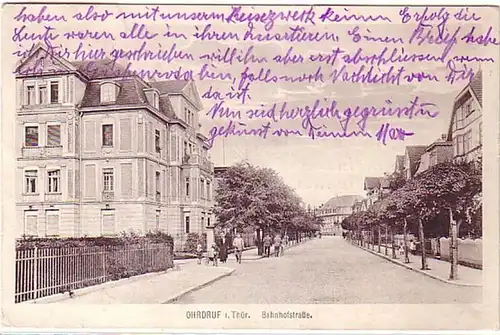 haben also mit unserm Reisezwerk keinen Erfolg die
Leute waren alle in ihren Quartieren. Einen Brief habe
ich Dir hier geschrieben will ihn aber erst abschliessen wenn
haben, falls noch Nachricht von Dir
da ist.
Nun seid herzlich gegrüsst u
geküsst von Deinem
OHRDRUF i. Thür. Bahnhofstraße.